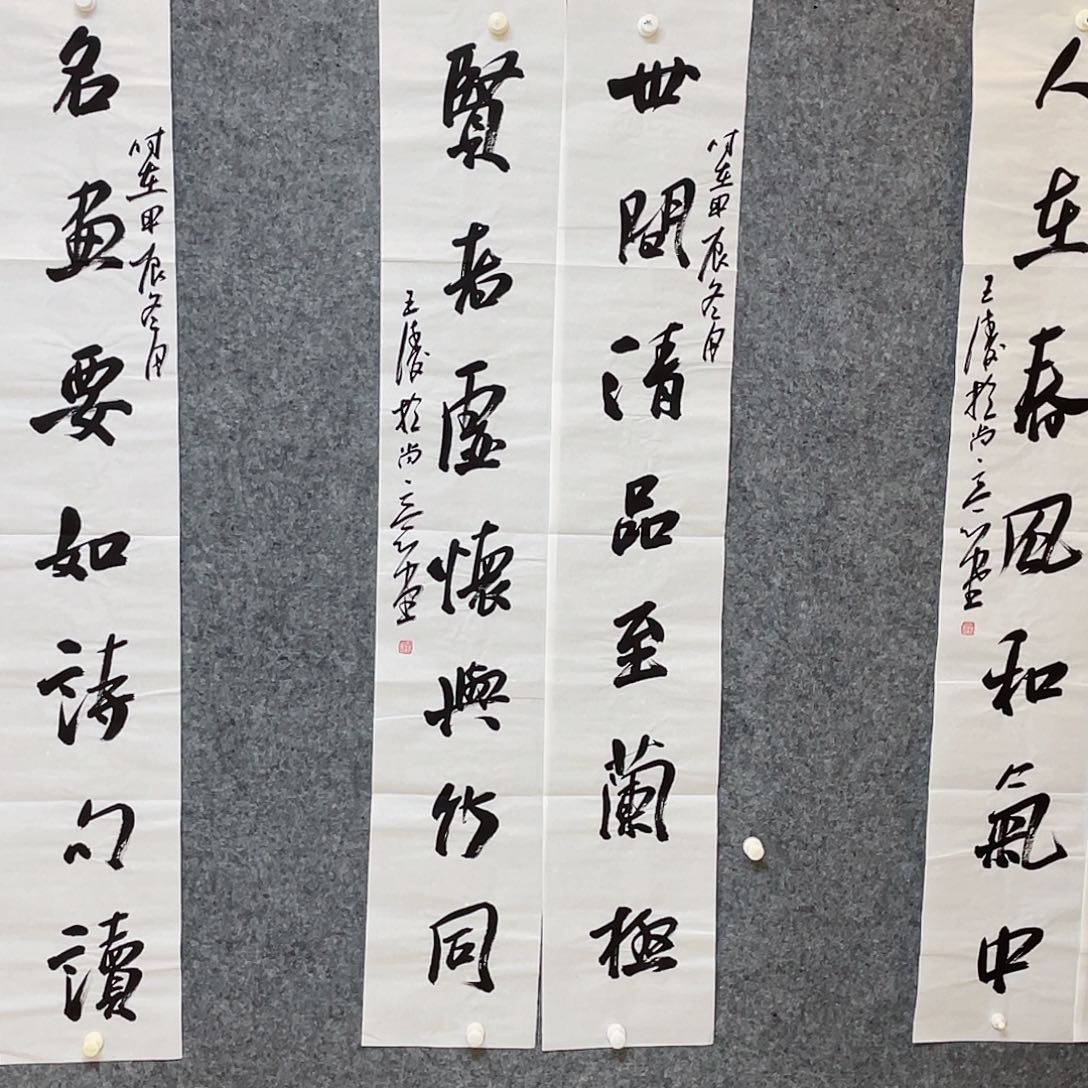 人在春風和氣中
王濤於尚意堂
時在甲辰冬月
世間清品至蘭極
賢者虛懷與竹同
王濤於尚意堂
時在甲辰冬月
名畫要如詩句讀